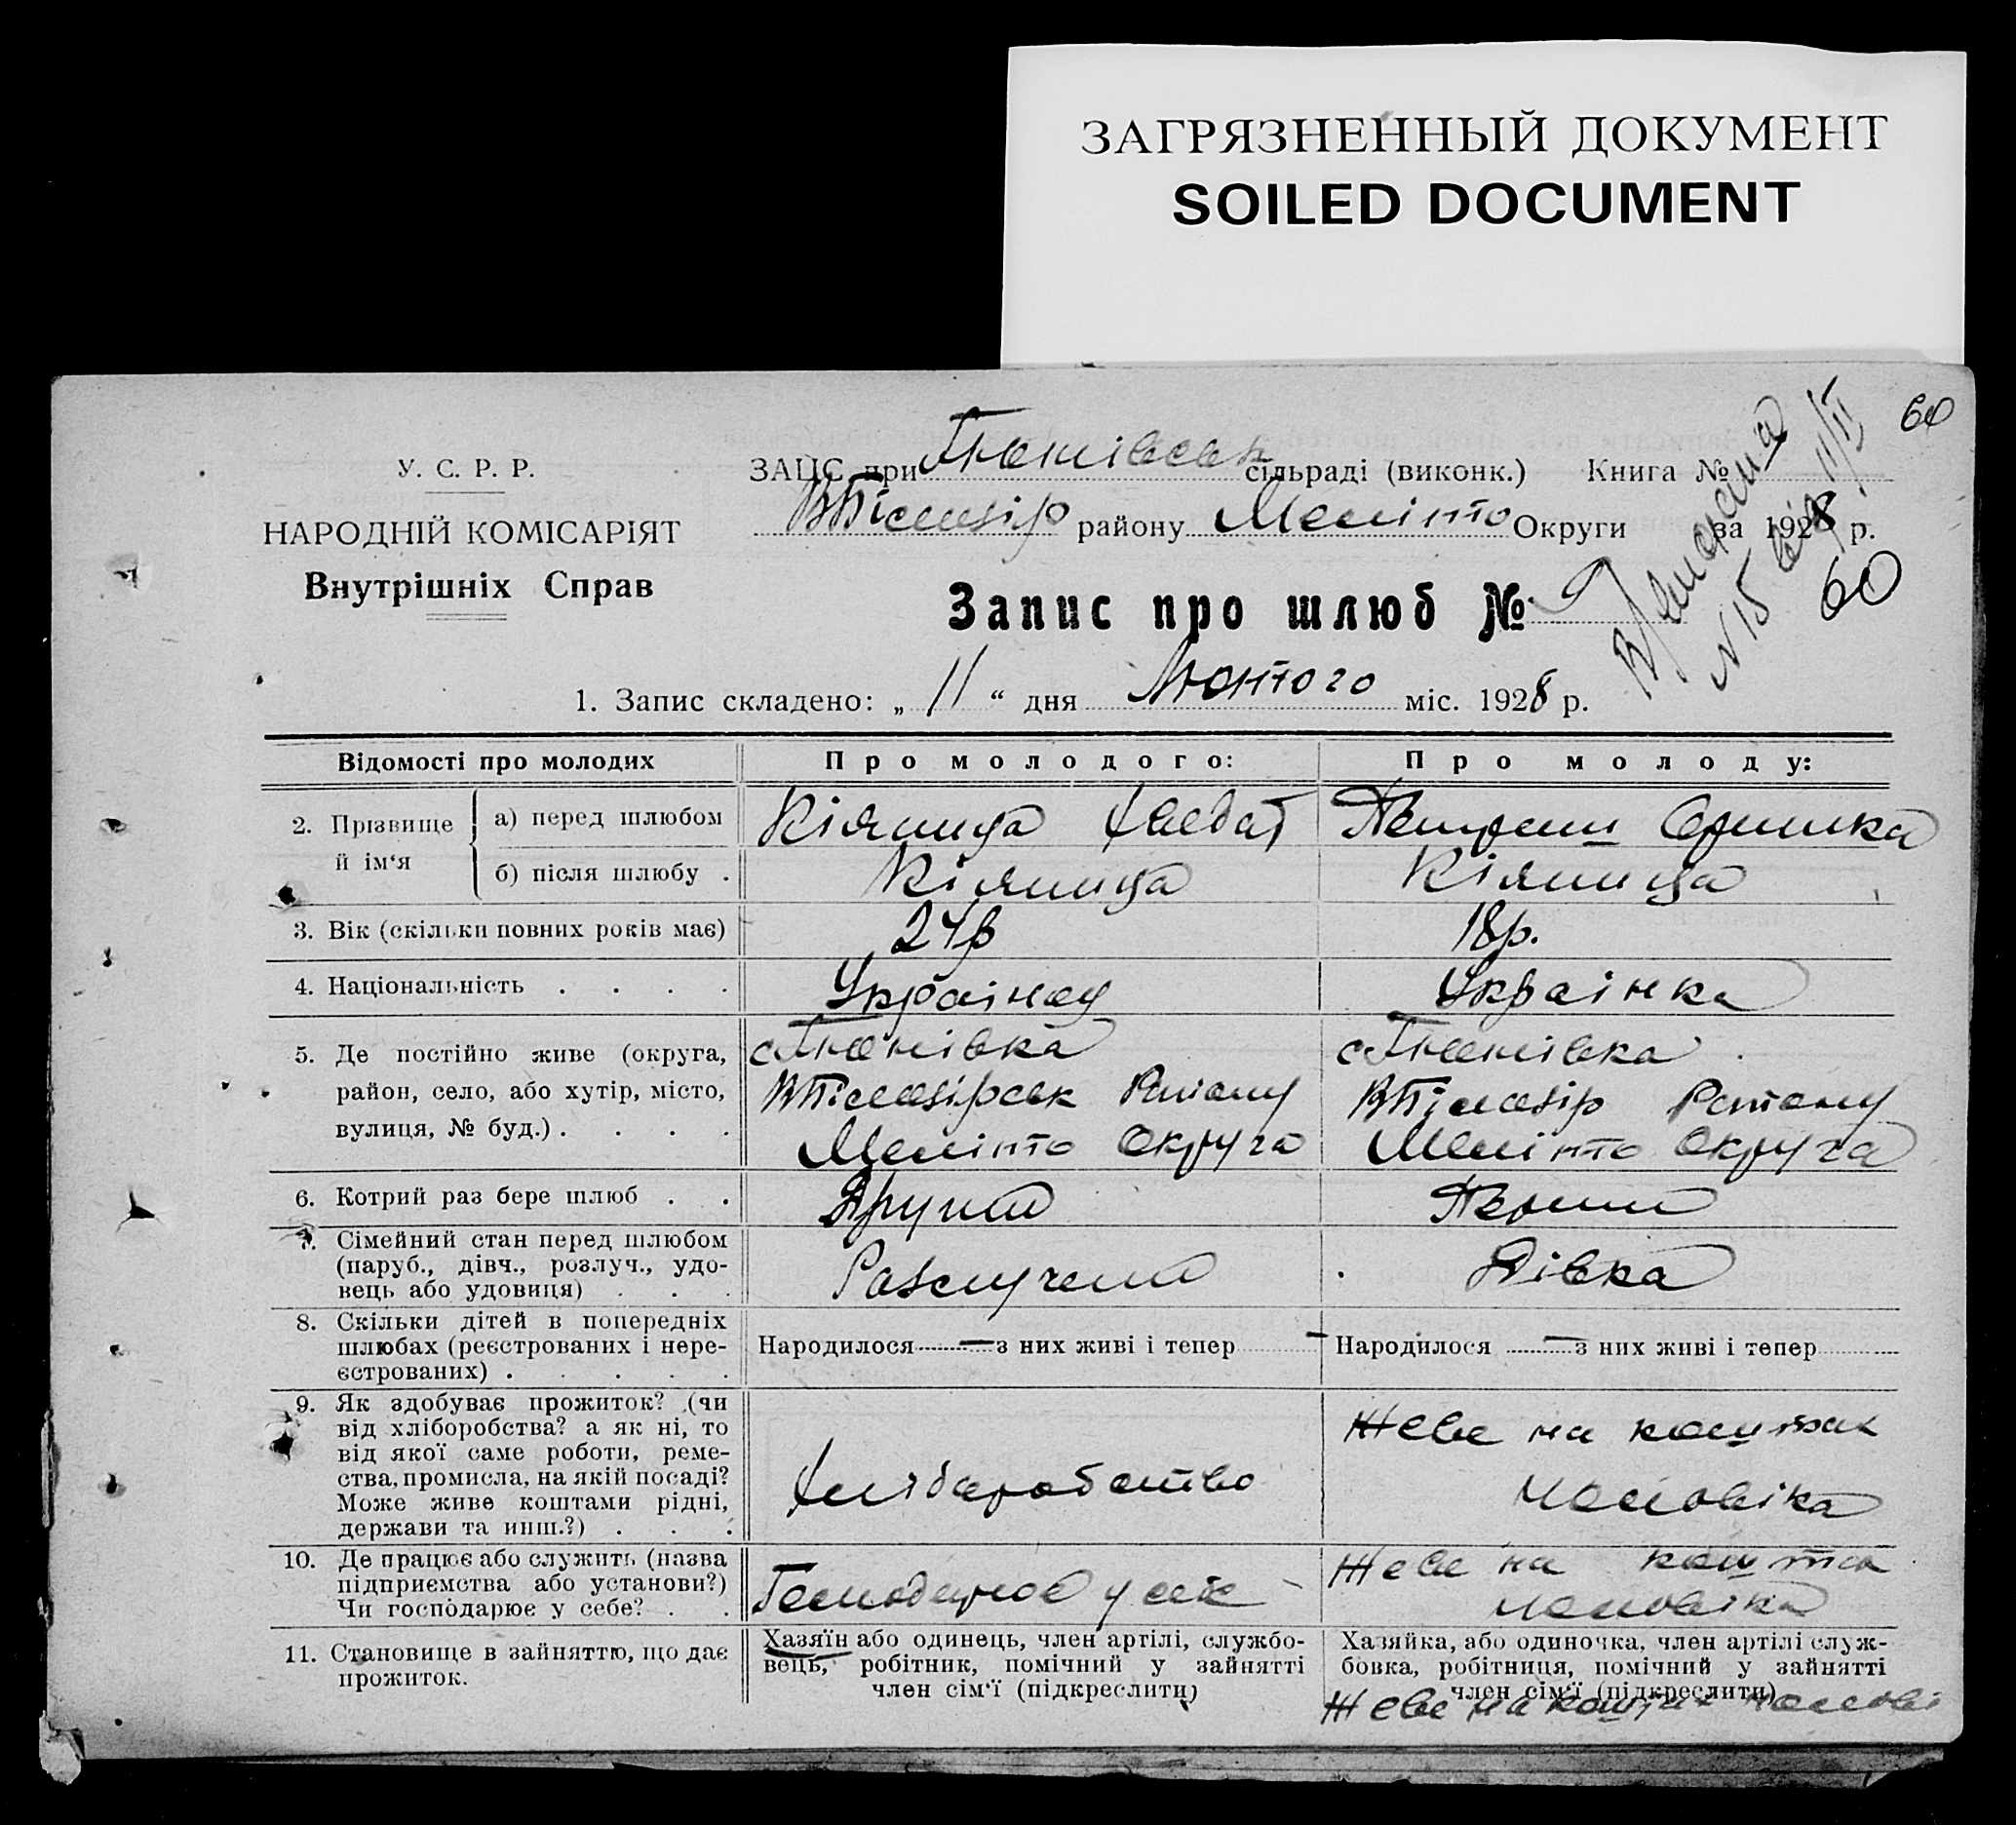 ЗАГРЯЗНЕННЫЙ ДОКУМЕНТ
SOILED DOCUMENT
60
У. С. Р. Р.
НАРОДНІЙ КОМІСАРІЯТ
Внутрішніх Справ
ЗАЦС при сільраді (виконк.) Книга №
району Меліто Округи за 1928 р.
Запис про шлюб № 9
№ 15 від 11/II
60
1. Запис складено: „ 11 “ дня Лютого міс. 1928 р.
Відомості про молодих
Про молодого:
Про молоду:
2. Прізвище й ім‘я
а) перед шлюбом
б) після шлюбу .
Кіяниця
Кіяниця
Кіяниця
3. Вік (скільки повних років має)
24р
18р.
4. Національність . . . .
Українец
Українка
5. Де постійно живе (округа,
район, село, або хутір, місто,
вулиця, № буд.) . . . .
Меліто Округа
Меліто Округа
6. Котрий раз бере шлюб . .
Другий
Перший
7. Сімейний стан перед шлюбом
(паруб., дівч., розлуч., удо-
вець або удовиця) . . .
Дівка
8. Скільки дітей в попередніх
шлюбах (реєстрованих і нере-
єстрованих) . . . . .
Народилося — з них живі і тепер —
Народилося — з них живі і тепер
9. Як здобуває прожиток? (чи
від хліборобства? а як ні, то
від якої саме роботи, реме-
ства, промисла, на якій посаді?
Може живе коштами рідні,
держави та инш.?) . . .
Хлібаробство
Жеве на коштах
чоловіка
10. Де працює або служить (назва
підприємства або установи?)
Чи господарює у себе? . .
Жеве на
чоловіка
11. Становище в зайняттю, що дає
прожиток.
Хазяїн або одинець, член артілі, службо-
вець, робітник, помічний у зайнятті
член сім‘ї (підкреслити)
Хазяйка, або одиночка, член артілі служ-
бовка, робітниця, помічний у зайнятті
член сім‘ї (підкреслити)
Жеве на